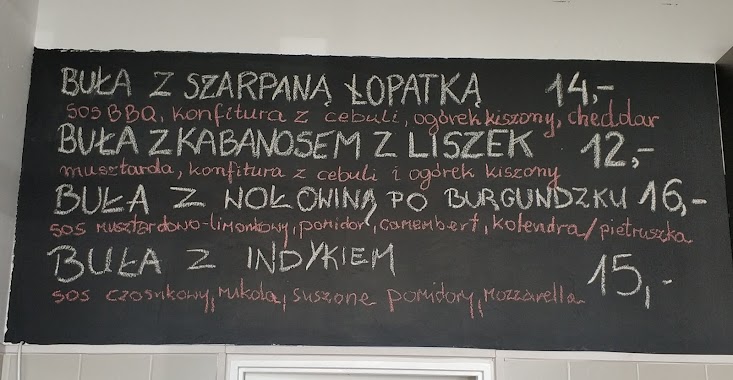 BUŁA Z SZARPANĄ ŁOPATKĄ 14,-
SOS BBQ, konfitura z cebuli, ogórek kiszony, cheddar
BUŁA Z KABANOSEM Z LISZEK 12,-
musztarda, konfitura z cebuli i ogórek kiszony
BUŁA Z WOŁOWINĄ PO BURGUNDZKU 16,-
SOS musztardowo-limonkowy, pomidor, camembert, kolendra/pietruszka
BUŁA Z INDYKIEM 15,-
SOS czosnkowy, rukola, suszone pomidory, mozzarella